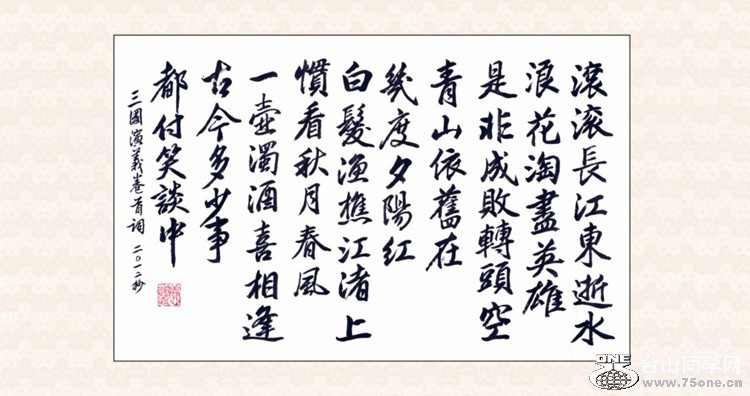 滾滾長江東逝水
浪花淘盡英雄
是非成敗轉頭空
青山依舊在
幾度夕陽紅
白髮漁樵江渚上
慣看秋月春風
一壺濁酒喜相逢
古今多少事
都付笑談中
三國演義卷首詞 二〇一二抄
ONE
台山同字网
www.75one.cn